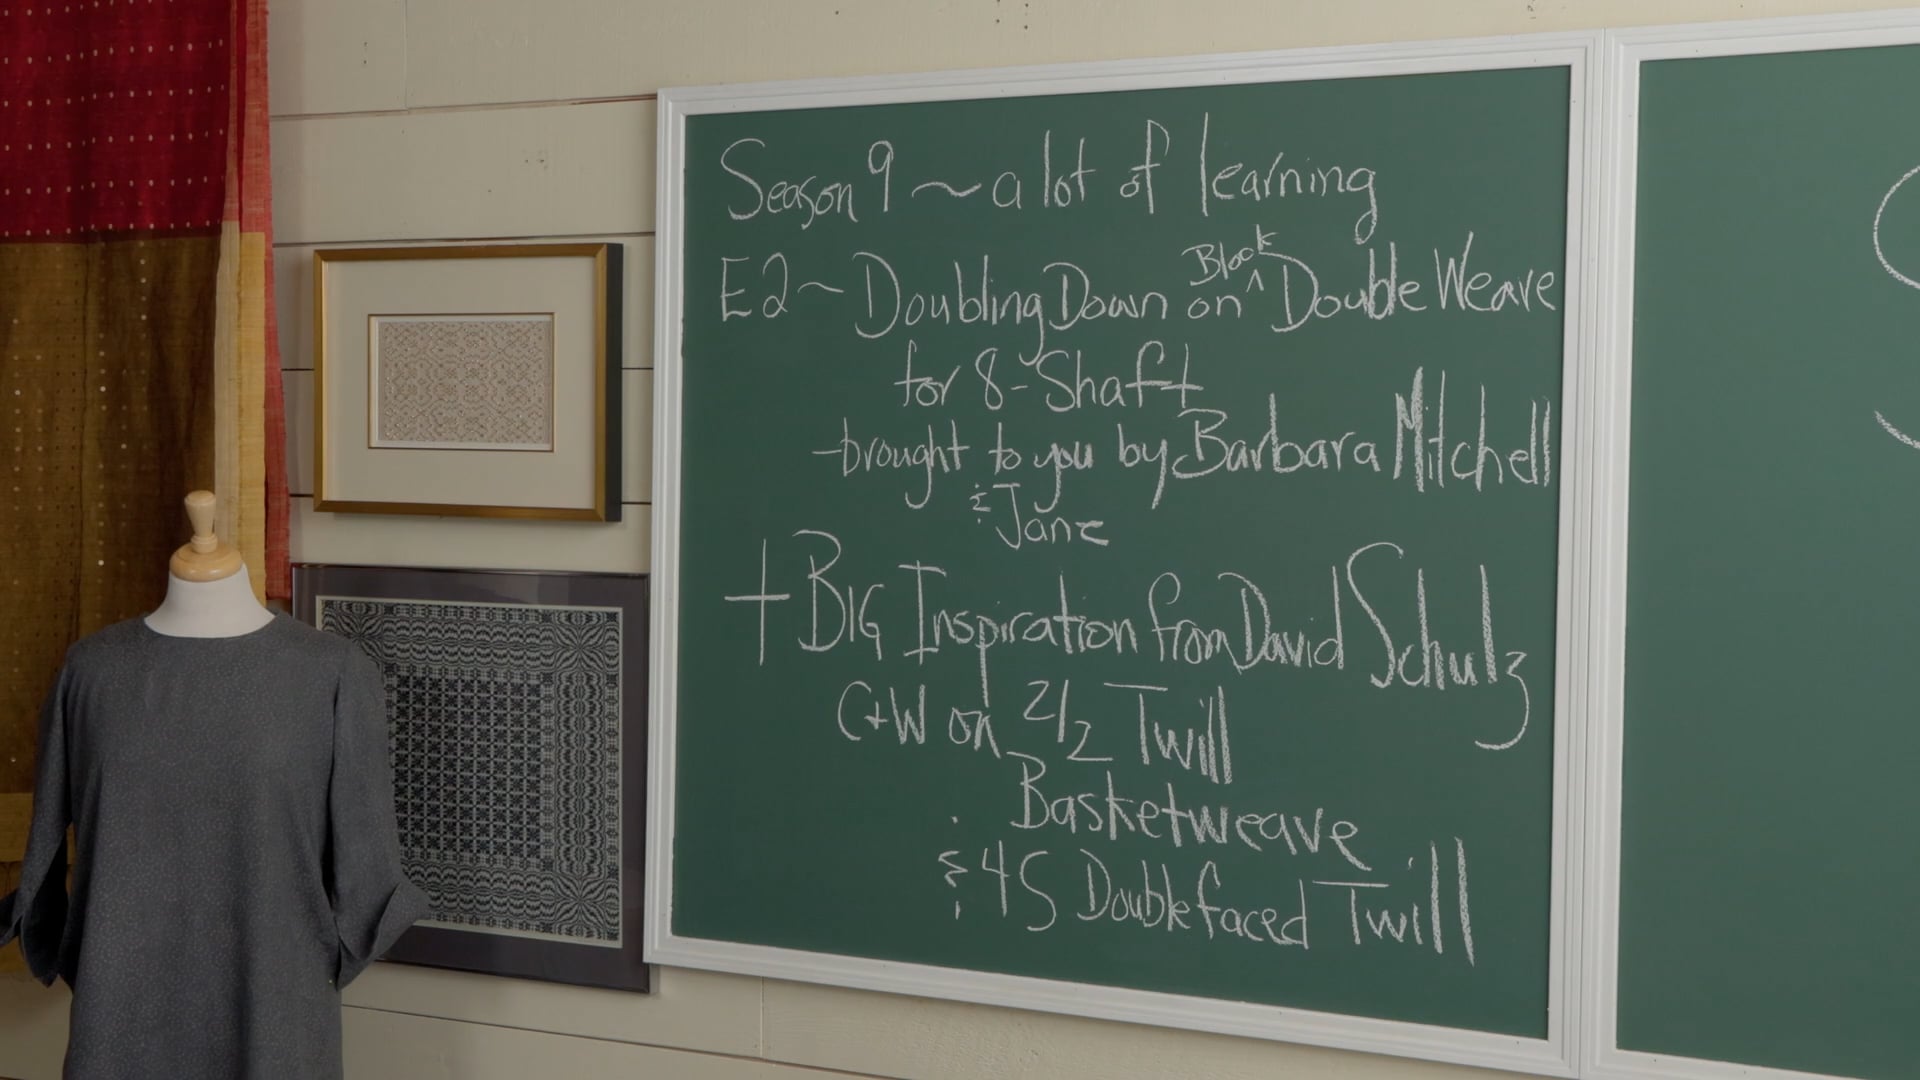 Season 9 ~ a lot of learning
E2 ~ Doubling Down on ^ Block Double Weave
for 8-Shaft
-brought to you by Barbara Mitchell
& Jane
+ BIG Inspiration from David Schulz
C+W on 2/2 Twill
Basketweave
& 4S Doublefaced Twill